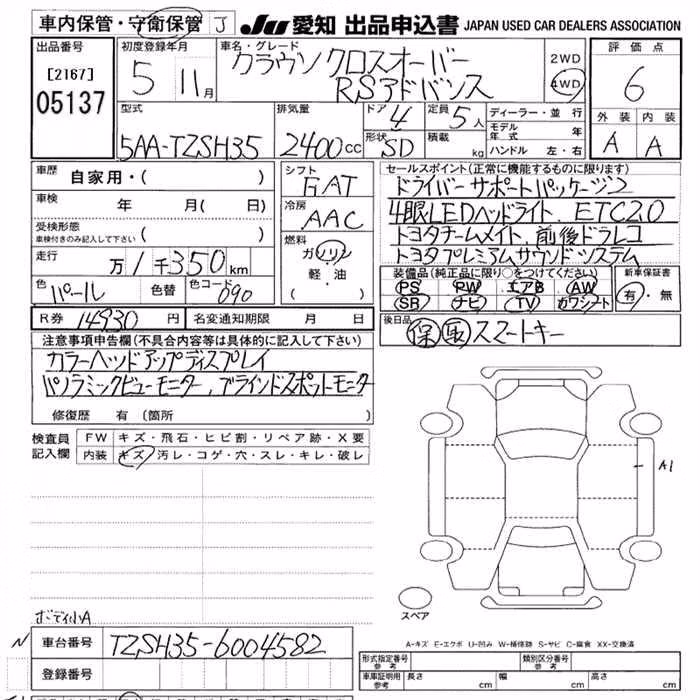 車内保管・守衛保管 J JU 愛知 出品申込書 JAPAN USED CAR DEALERS ASSOCIATION
出品番号
[2167]
05137
初度登録年月
5 11月
車名・グレード
クラウン クロスオーバー
RSアドバンス
2WD
4WD
評価点
6
外装 内装
A A
型式
5AA-TZSH35
排気量
2400cc
ドア 4
定員 5人
形状 SD
積載 kg
ディーラー・並行
モデル年式 年
ハンドル 左・右
車歴
自家用・( )
車検
年 月( 日)
受検形態
車検付きのみ記入して下さい ( )
走行
万 1千350km
色 パール 色替 色コード 090
シフト
FAT
冷房
AAC
燃料
ガソリン
軽・油
( )
セールスポイント(正常に機能するものに限ります)
ドライバーサポートパッケージ2
4眼LEDヘッドライト、ETC2.0
トヨタチームメイト、前後ドラレコ
トヨタプレミアムサウンドシステム
装備品(純正品に限り○をつけてください)
PS PW エアB AW
SR ナビ TV カワシート
新車保証書
有・無
R券 14930円 名変通知期限 月 日
後日品
保 取 スマートキー
注意事項申告欄(不具合内容等は具体的に記入して下さい)
カラーヘッドアップディスプレイ
パノラミックビューモニター、ブラインドスポットモニター
修復歴 有(箇所 )
検査員記入欄
FW キズ・飛石・ヒビ割・リペア跡・X要
内装 キズ・汚レ・コゲ・穴・スレ・キレ・破レ
A1
スペア
ボディ小A
A-キズ E-エクボ U-凹み W-補修跡 S-サビ C-腐食 XX-交換済
車台番号 TZSH35-6004582
登録番号
形式指定番号 参考
類別区分番号 参考
車庫証明用 参考 長さ cm 幅 cm 高さ cm